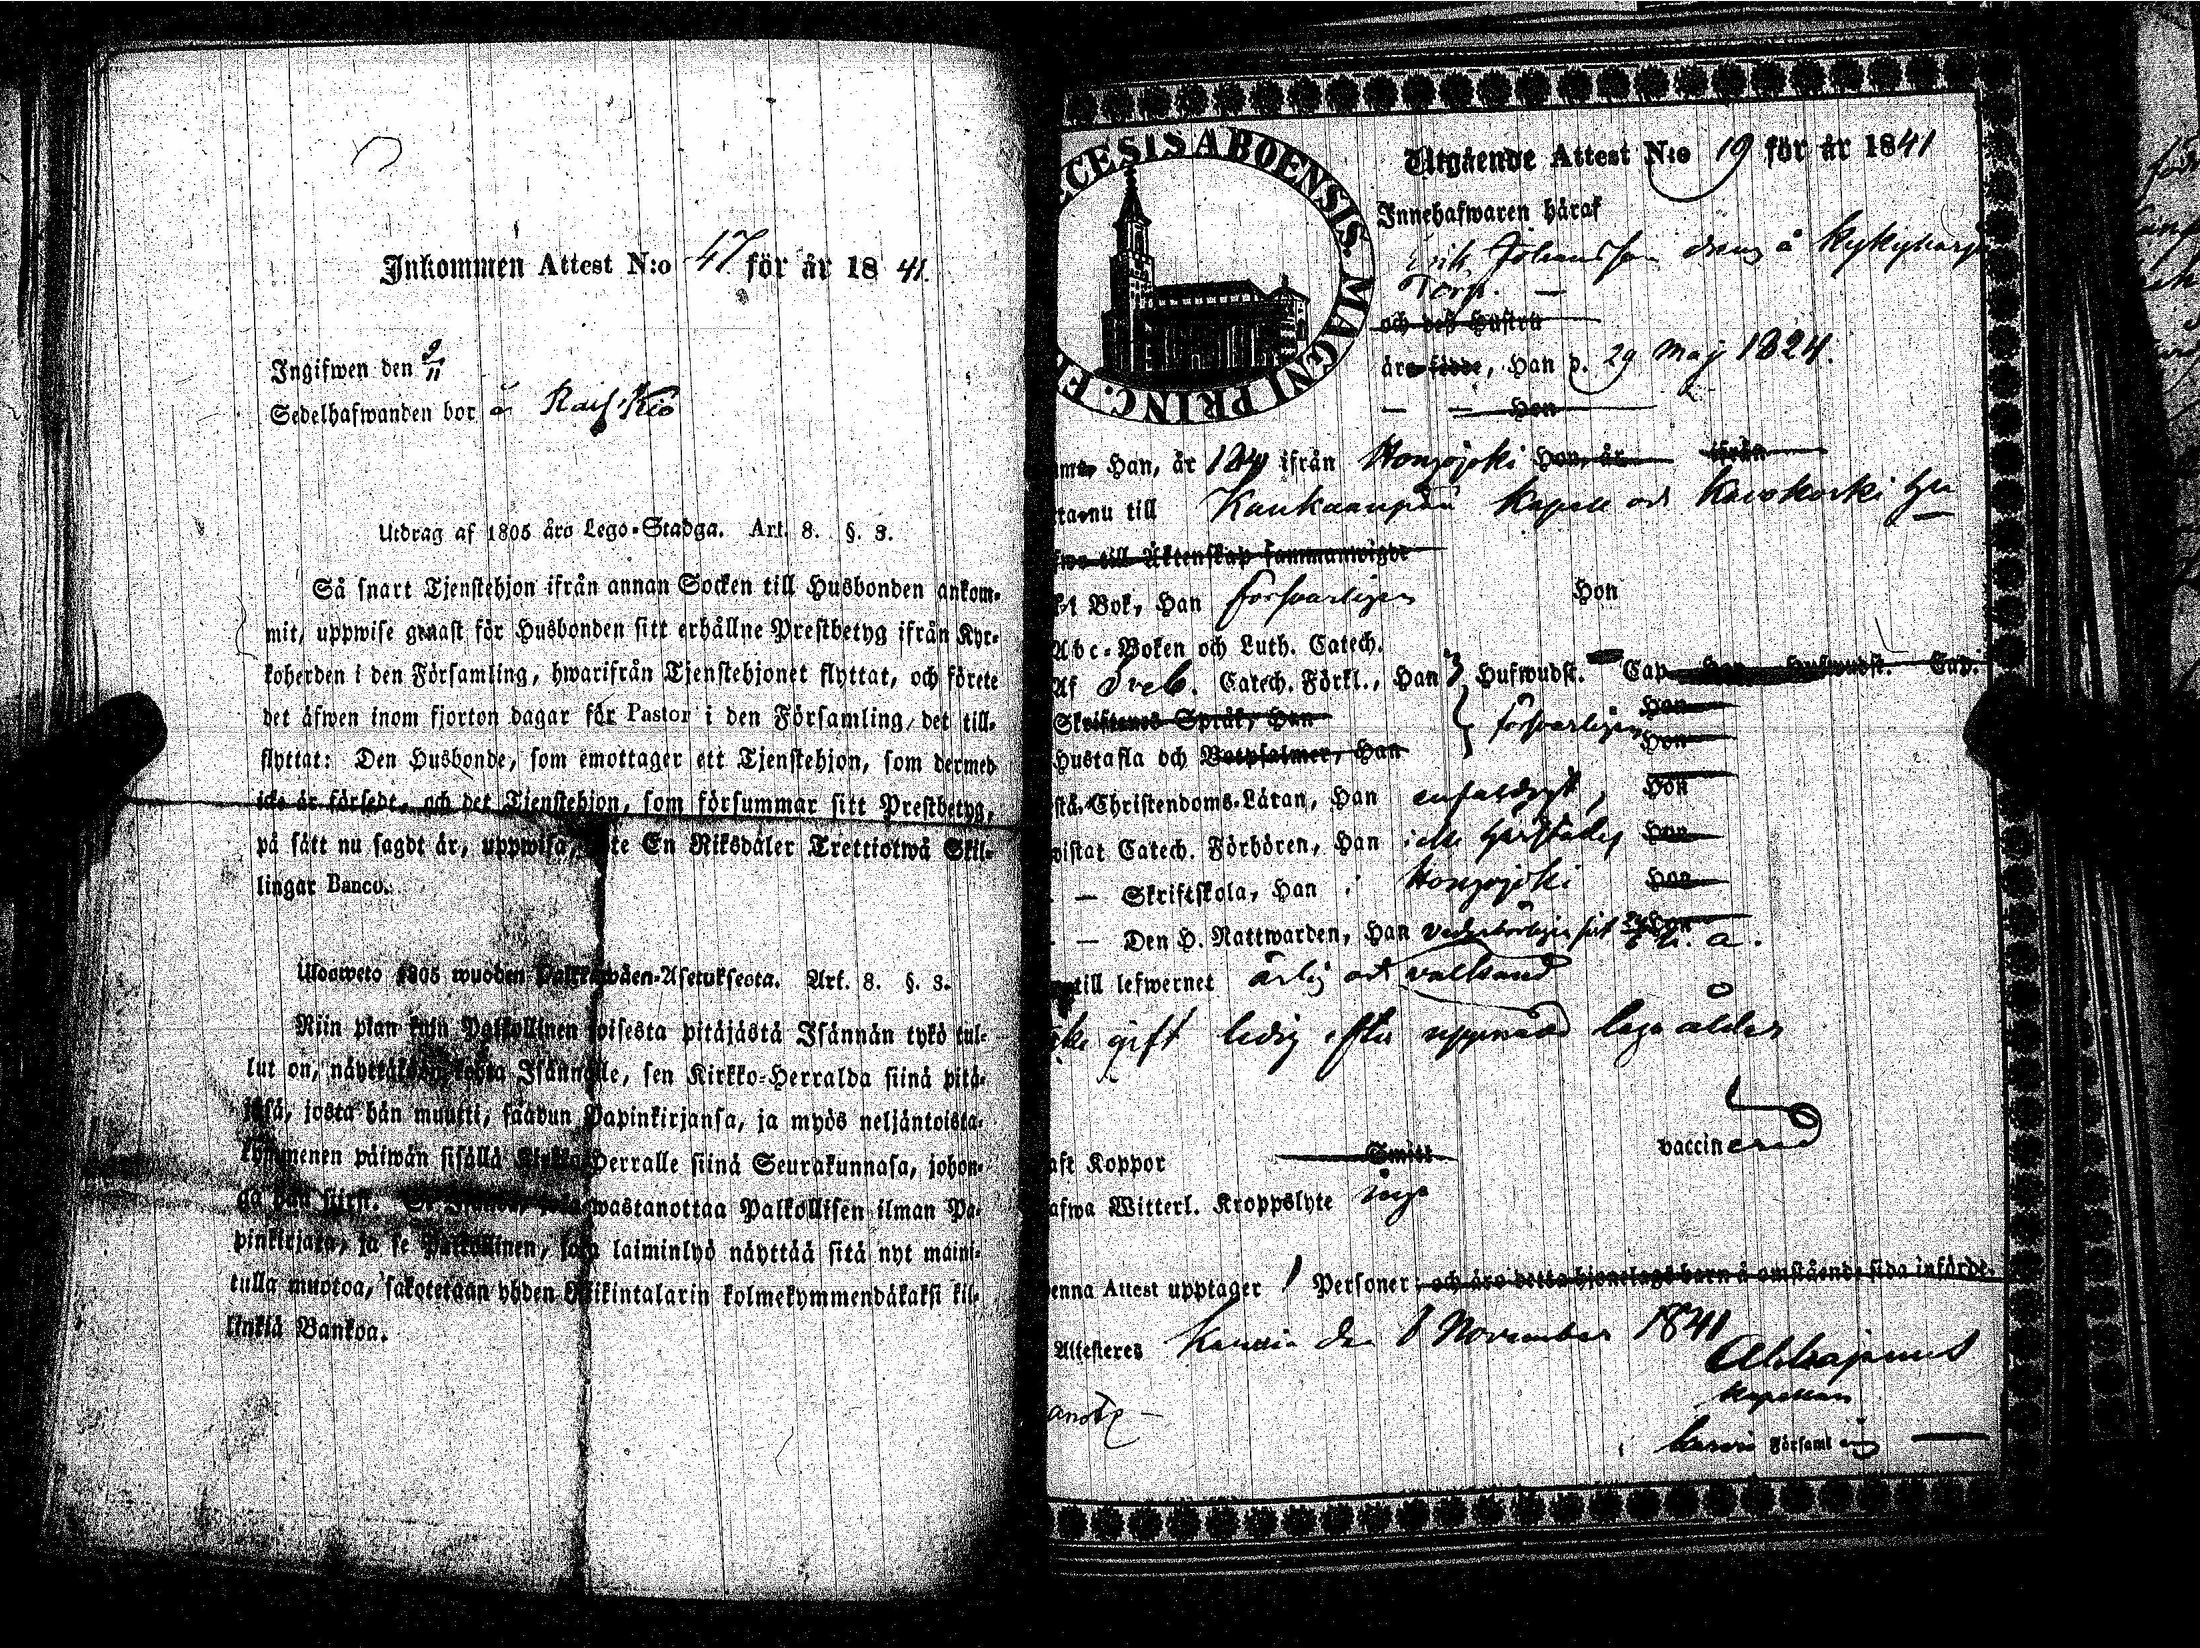 Inkommen Attest N:o 47 för år 1841.
Ingifwen den 9/11
Sedelhafwanden bor å
Utdrag af 1805 års Lego-Stadga. Art. 8. §. 3.
Så snart Tjenstehjon ifrån annan Socken till Husbonden ankom-
mit, uppwise genast för Husbonden sitt erhållne Prestbetyg ifrån Kyr-
koherden i den Församling, hwarifrån Tjenstehjonet flyttat, och förete
det äfwen inom fjorton dagar för Pastor i den Församling det till-
flyttat: Den Husbonde, som emottager ett Tjenstehjon, som dermed
icke är försedt, och det Tjenstehjon, som försummar sitt Prestbetyg,
på sätt nu sagdt är, uppwisa, En Riksdaler Trettiotwå Skil-
lingar Banco.
Ulosweto 1805 wuoden Palkkawäen-Asetuksesta. Art. 8. §. 3.
Niin pian kuin Palkollinen toisesta pitäjästä Isännän tykö tul-
lut on, Isännälle, sen Kirkko-Herralda siinä pitä-
jäsä, josta hän muutti, saadun Papinkirjansa, ja myös neljäntoista-
kymmenen päiwän sisällä Kirkko-Herralle siinä Seurakunnasa, johon-
ga hän siirsi. wastanottaa Palkollisen ilman Pa-
pinkirjata, ja se Palkollinen, joka laiminlyö näyttää sitä nyt maini-
tulla muotoa, sakotetaan yhden Riikintalarin kolmekymmendäkaksi kil-
linkiä Bankoa.
ECESIS ABOENSIS. MAGNI PRINC. F
Utgående Attest N:o 19 för år 1841
Innehafwaren häraf
Erik Johansson dräng å
Torp. —
och des Hustru
äro födde, Han d. 29 Maj 1824.
— — Hon
Han, år 1840 ifrån Hongojoki Hon, år ifrån
nu till Kankaanpää Kapell och
till Äktenskap sammanwigde
Bok, Han försvarligen Hon
Abc-Boken och Luth. Catech.
Af Sveb. Catech. Förkl., Han 3 Hufwudst. Cap. Hon Hufwudst. Cap.
Skriftenes Språk, Han Hon
Hustafla och Botpsalmer, Han försvarligen Hon
Christendoms-Läran, Han enfaldigt, Hon
Catech. Förhören, Han icke Hon
— Skriftskola, Han i Hongojoki Hon
— Den H. Nattwarden, Han vederbörligen sist Hon
till lefwernet ärlig och
gift ledig efter uppnådd laga ålder
Koppor Smitt vaccinerad
Witterl. Kroppslyte inga
Attest upptager 1 Personer, och äro detta hjonelags barn å omstående sida införde.
Attesteres den 8 November 1841
Kapellan
i Församling